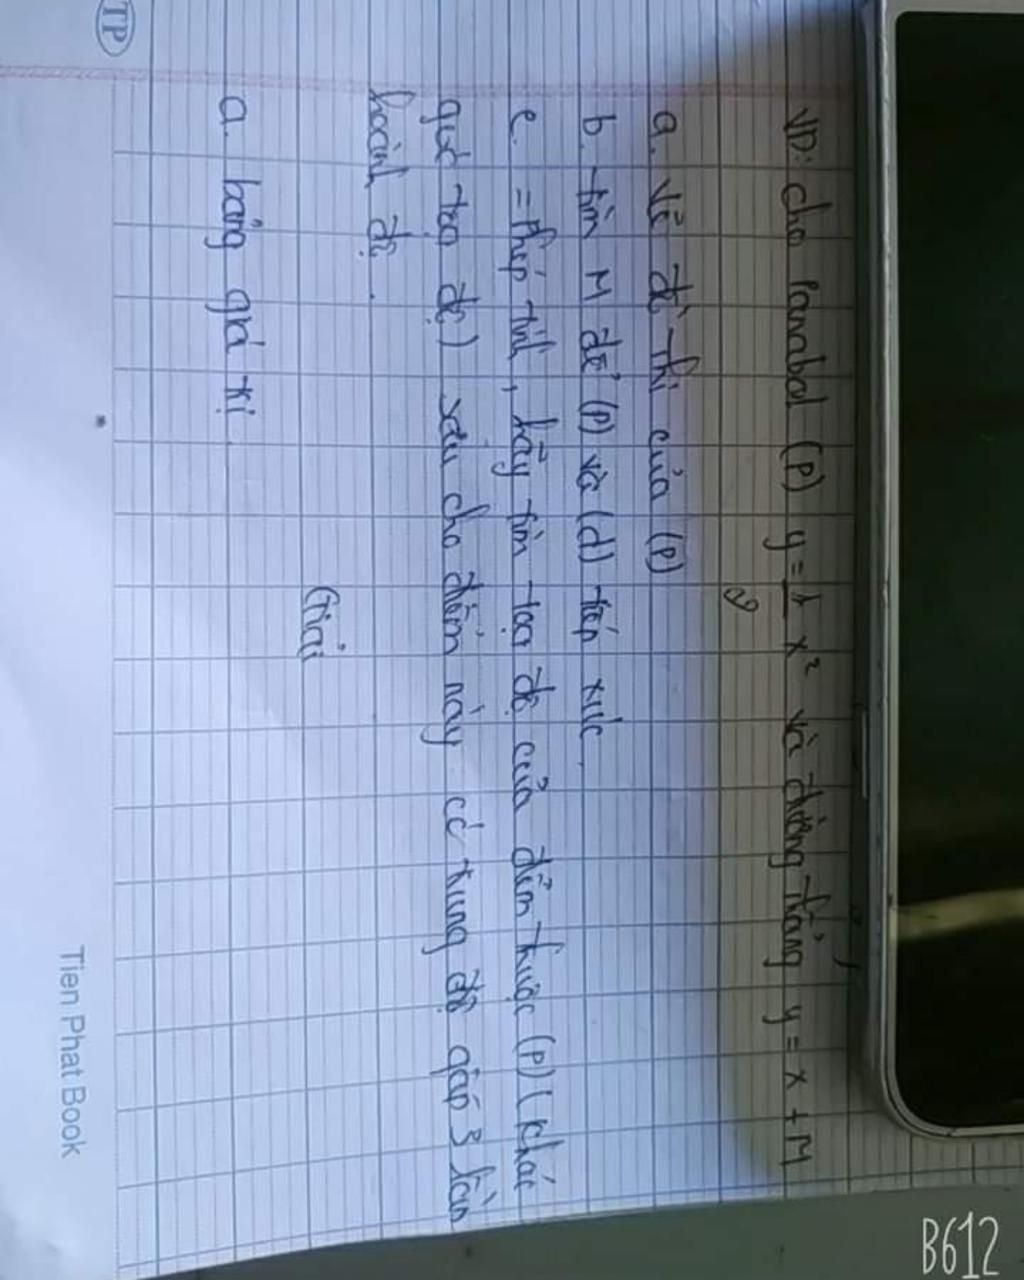 VD: cho Parabol (P) y = 1/2 x² và đường thẳng y = x + M
a. Vẽ đồ thị của (P)
b. tìm M để (P) và (d) tiếp xúc.
c. = Phép tính, hãy tìm toạ độ của điểm thuộc (P) (khác
gốc toạ độ) sau cho điểm này có tung độ gấp 3 lần
hoành độ.
Giải
a. bảng giá trị
TP
Tien Phat Book
B612